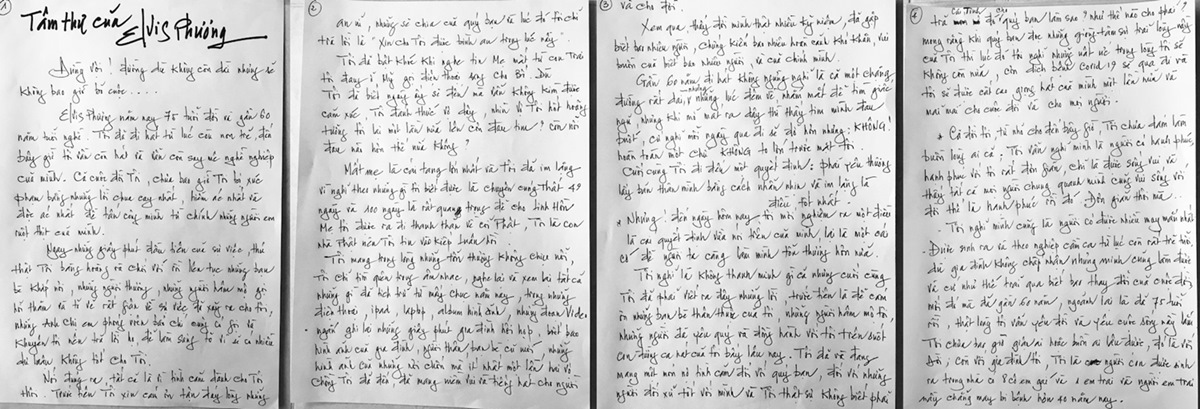 1
Tâm thư của
Elvis Phương
Đừng vội! đường dù không còn dài nhưng sẽ
không bao giờ bỏ cuộc ....
Elvis Phương năm nay 75 tuổi đời và gần 60
năm tuổi nghề. Tôi đã đi hát từ lúc còn trẻ, đến
bây giờ tôi vẫn còn hát và vẫn còn say mê nghề nghiệp
của mình. Cả cuộc đời Tôi, chưa bao giờ Tôi bị xúc
phạm bằng những lời chua cay nhất, hiểm ác nhất và
độc ác nhất để tấn công mình từ chính những người em
ruột thịt của mình.
Ngay những giây phút đầu tiên của sự việc, thú
thật Tôi bàng hoàng và chới với vì liên tục những bạn
bè khắp nơi, những người thương, những người hâm mộ gọi
hỏi thăm và tỏ vẻ rất giận về sự việc đã xảy ra cho tôi,
những anh chị em phóng viên báo chí cũng có gọi và
khuyên tôi nên trả lời họ, để làm sáng tỏ vì
dư luận không tốt cho Tôi.
Nói đúng ra, tất cả là vì tình cảm dành cho Tôi
thôi. Trước tiên Tôi xin cảm ơn tấn đáy lòng những
2
an ủi, những sẻ chia của quý bạn và lúc đó tôi chỉ
trả lời là "Xin cho Tôi được bình an trong lúc này".
Tôi đã bật khóc khi nghe tin Mẹ mất từ con Trai
tôi đang ở Mỹ gọi điện thoại sang cho Bố. Dù
Tôi đã biết ngày ấy sẽ đến mà vẫn không kìm được
cảm xúc. Tôi đánh thức vợ dậy, nhiều lần Tôi hát hoảng
tưởng tôi lại một lần nữa lên cơn đau tim? Còn nỗi
đau nào hơn thế nữa không?
Mất mẹ là cái tang lớn nhất và Tôi đã im lặng
vì nghĩ theo những gì tôi biết được là chuyện cúng Thất 49
ngày và 100 ngày là rất quan trọng để cho linh hồn
Mẹ tôi được ra đi thanh thản về cõi Phật, Tôi là con
nhà Phật nên Tôi tin vào kiếp luân hồi.
Tôi mang trong lòng những tổn thương không chịu nổi,
Tôi chỉ tìm quên trong âm nhạc, nghe lại và xem lại tất cả
những gì đã tích trữ từ mấy chục năm nay, trong những
điện thoại, ipad, laptop, album hình ảnh, những đoạn Video
ngắn ghi lại những giây phút gia đình hội họp, biết bao
hình ảnh của gia đình, người thân bạn bè cũ mới, những
hình ảnh của những nơi chốn mà ít nhất một lần hai vợ
chồng Tôi đã đến, để mang niềm vui và tiếng hát cho người
3
và cho đời.
Xem qua, thấy đời mình thật nhiều kỷ niệm, đã gặp
biết bao nhiêu người, chứng kiến bao nhiêu hoàn cảnh khó khăn, vui
buồn của biết bao nhiêu người, và của chính mình.
Gần 60 năm đi hát không ngừng nghỉ là cả một chặng
đường rất dài, những lúc đêm về nhắm mắt để tìm giấc
ngủ nhưng khi mở mắt ra dậy thì thấy tim mình đau
buốt, cứ nghĩ mỗi ngày qua đi sẽ đỡ hơn nhưng: KHÔNG!
hoàn toàn một chữ KHÔNG to lớn trước mắt tôi.
Cuối cùng Tôi đi đến một quyết định: phải yêu thương
lấy bản thân mình bằng cách nhẫn nhịn và im lặng là
điều tốt nhất.
* Nhưng! đến ngày hôm nay tôi mới nghiệm ra một điều
là cái quyết định vừa nói trên của mình, lại là một cái
cớ để người ta càng làm mình tổn thương hơn nữa.
Tôi nghĩ là không thanh minh gì cả nhưng cuối cùng
Tôi đã phải viết ra đây những lời trước tiên là để cảm
ơn những bạn bè thân thương của tôi, những người hâm mộ tôi,
những người đã yêu quý và đồng hành với tôi trên suốt
con đường ca hát của tôi bấy lâu nay. Tôi đã và đang
mang một món nợ tình cảm đối với quý bạn, đối với những
người đối xử tốt với mình và Tôi thật sự không biết phải
4
trả cái tình đó cho quý bạn làm sao? như thế nào cho phải?
mong rằng khi quý bạn đọc những dòng tâm sự trải lòng này
của Tôi thì lúc đó tôi nghĩ những uất ức trong lòng tôi sẽ
không còn nữa, còn dịch bệnh Covid 19 sẽ qua đi và
tôi sẽ được cất cao giọng hát của mình một lần nữa và
mãi mãi cho cuộc đời và cho mọi người.
* Cả đời tôi từ nhỏ cho đến bây giờ, Tôi chưa dám làm
buồn lòng ai cả. Tôi vẫn nghĩ mình là người có hạnh phúc,
hạnh phúc với tôi rất đơn giản, chỉ là được sống vui và
thấy tất cả mọi người chung quanh mình cùng vui sống với
đời thế là hạnh phúc rồi đó. Đơn giản thôi mà.
Tôi nghĩ mình cũng là người có được nhiều may mắn nhất
Được sinh ra và theo nghiệp cầm ca từ lúc còn rất trẻ tuổi
dù gia đình không chấp nhận nhưng mình cũng làm được
và cứ như thế trải qua biết bao thay đổi của cuộc đời,
mới đó mà đã gần 60 năm, ngoảnh lại là đã 75 tuổi
rồi, thật lòng tôi vẫn yêu đời và yêu cuộc sống này lắm.
Tôi chưa bao giờ giận ai hoặc buồn ai lâu được, đó là với
đời; còn với gia đình tôi, Tôi là người con được sinh
ra trong nhà có 8 cô em gái và 1 em trai và người em trai
này chẳng may bị bệnh hơn 40 năm nay.